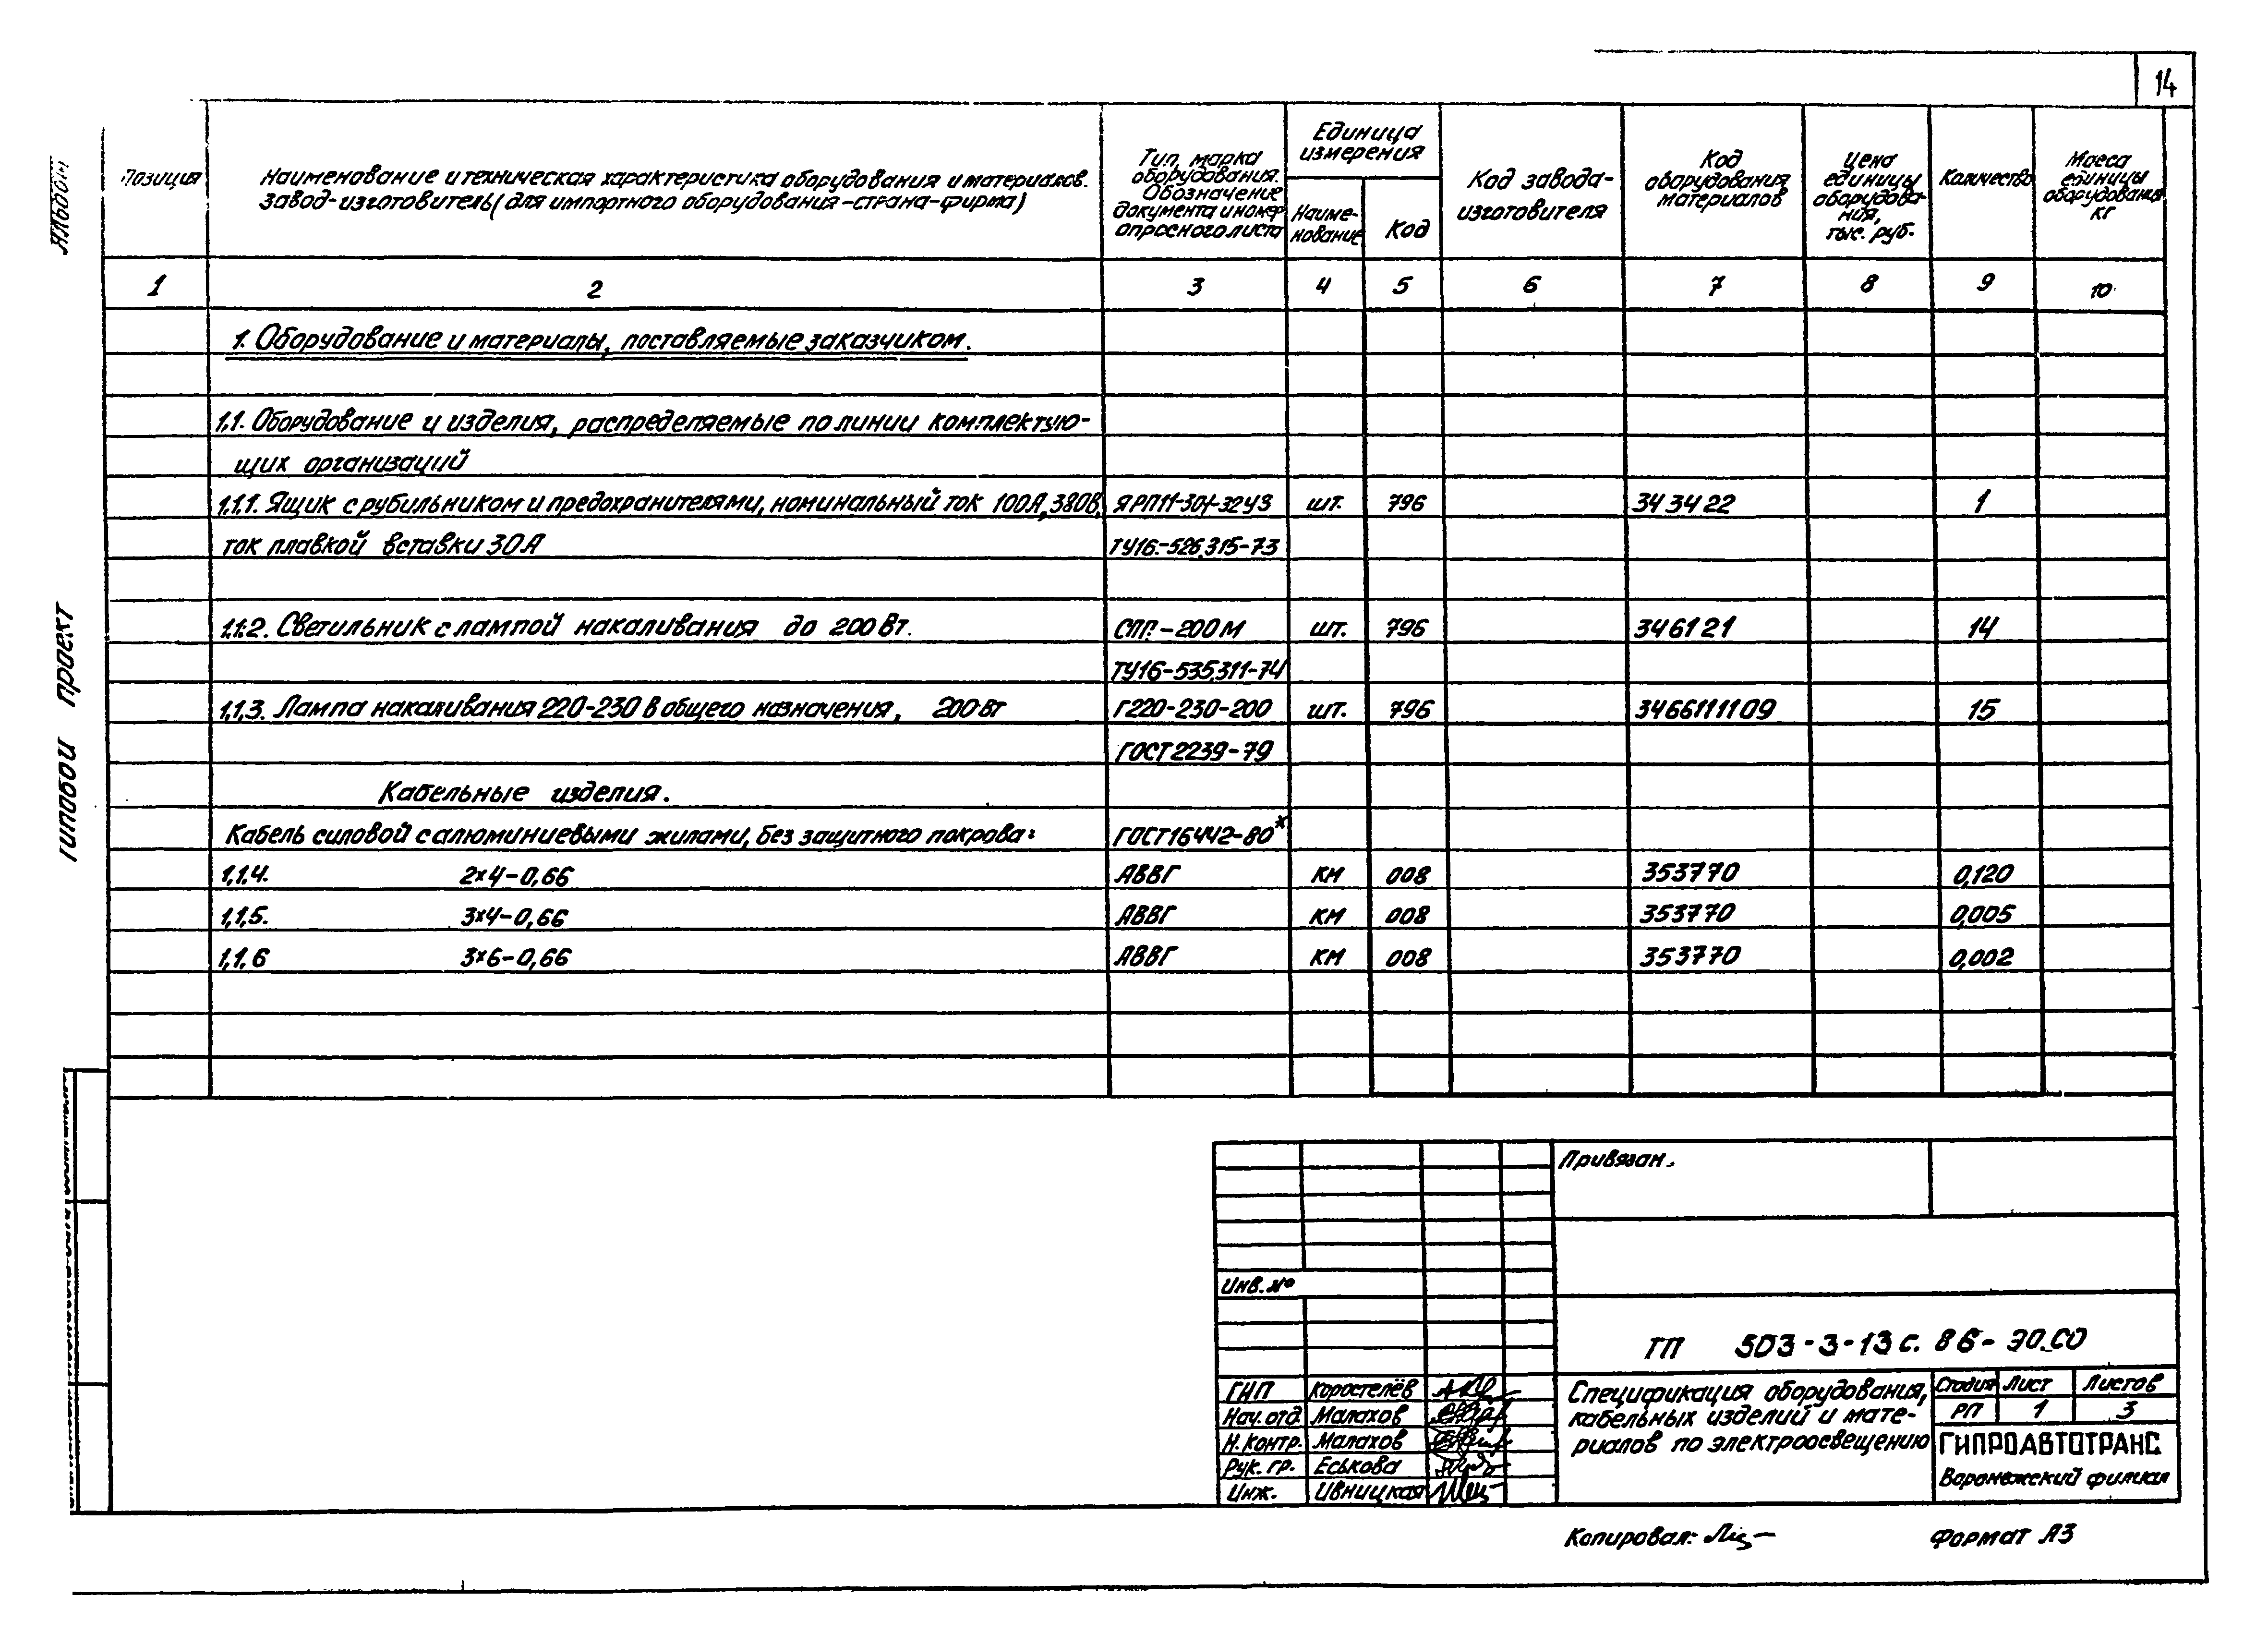 14
Альбом
Типовой проект
Позиция
Наименование и техническая характеристика оборудования и материалов.
Завод-изготовитель (для импортного оборудования-страна-фирма)
Тип, марка
оборудования.
Обозначение
документа и номер
опросного листа
Единица
измерения
Наиме-
нование
Код
Код завода-
изготовителя
Код
оборудования
материалов
Цена
единицы
оборудова-
ния,
тыс. руб.
Количество
Масса
единицы
оборудования
кг
1 2 3 4 5 6 7 8 9 10
1. Оборудование и материалы, поставляемые заказчиком.
1.1. Оборудование и изделия, распределяемые по линии комплектую-
щих организаций
1.1.1. Ящик с рубильником и предохранителями, номинальный ток 100А, 380В, ЯРП11-301-32У3 шт. 796 343422 1
ток плавкой вставки 30А ТУ16.-526.315-73
1.1.2. Светильник с лампой накаливания до 200Вт. СПР-200М шт. 796 346121 14
ТУ16-535.311-74
1.1.3. Лампа накаливания 220-230 В общего назначения, 200Вт Г220-230-200 шт. 796 3466111109 15
ГОСТ 2239-79
Кабельные изделия.
Кабель силовой с алюминиевыми жилами, без защитного покрова: ГОСТ16442-80*
1.1.4. 2×4-0,66 АВВГ км 008 353770 0,120
1.1.5. 3×4-0,66 АВВГ км 008 353770 0,005
1.1.6 3×6-0,66 АВВГ км 008 353770 0,002
Привязан.
Инв.№
ТП 503-3-13с.86-ЭО.СО
ГИП Коростелёв
Нач.отд. Малахов
Н.контр. Малахов
Рук.гр. Еськова
Инж. Ивницкая
Спецификация оборудования,
кабельных изделий и мате-
риалов по электроосвещению
Стадия Лист Листов
РП 1 3
ГИПРОАВТОТРАНС
Воронежский филиал
Копировал:
Формат А3